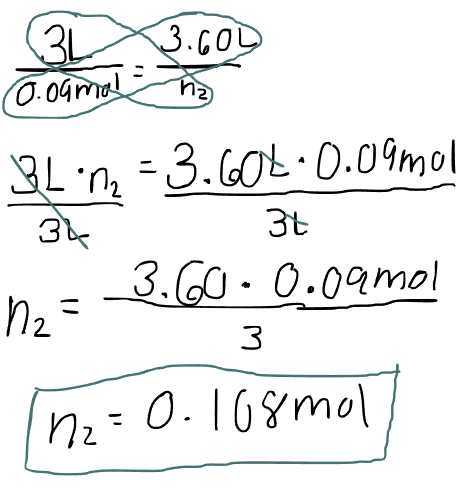 3L/0.09mol = 3.60L/n₂
3L · n₂/3L = 3.60L · 0.09mol/3L
n₂ = 3.60 · 0.09mol/3
n₂ = 0.108mol